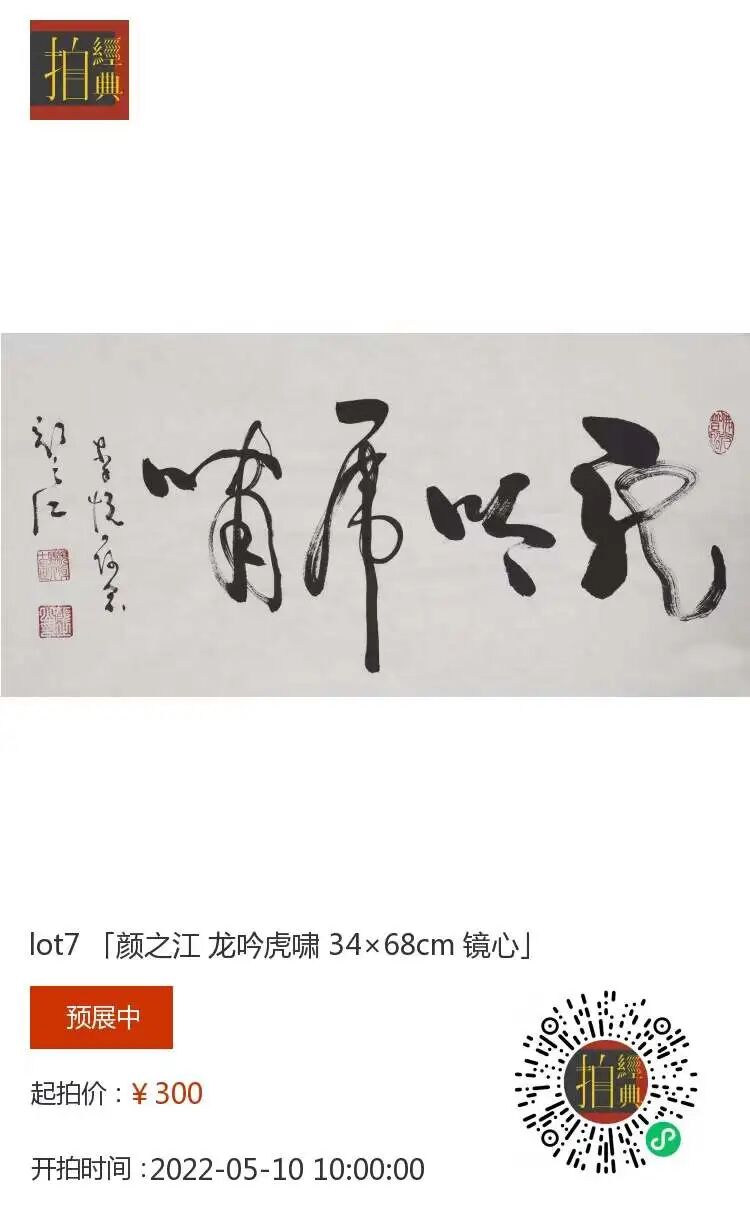 拍經典
龙吟虎啸
颜之江
lot7 「颜之江 龙吟虎啸 34×68cm 镜心」
预展中
起拍价：￥300
开拍时间：2022-05-10 10:00:00
拍經典